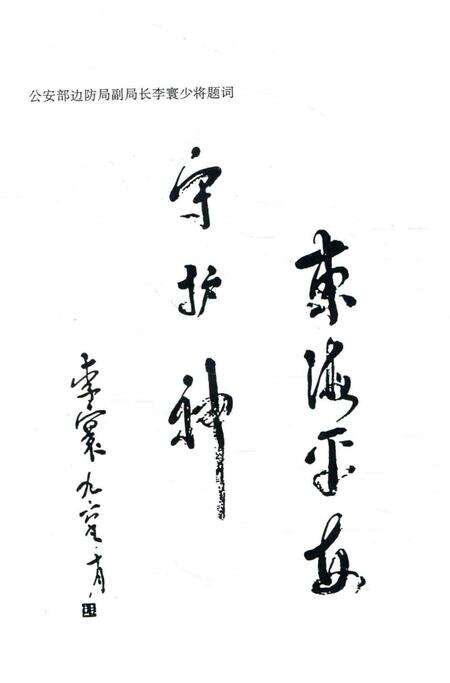 公安部边防局副局长李寰少将题词
東海平安
守护神
李寰 九 年 月